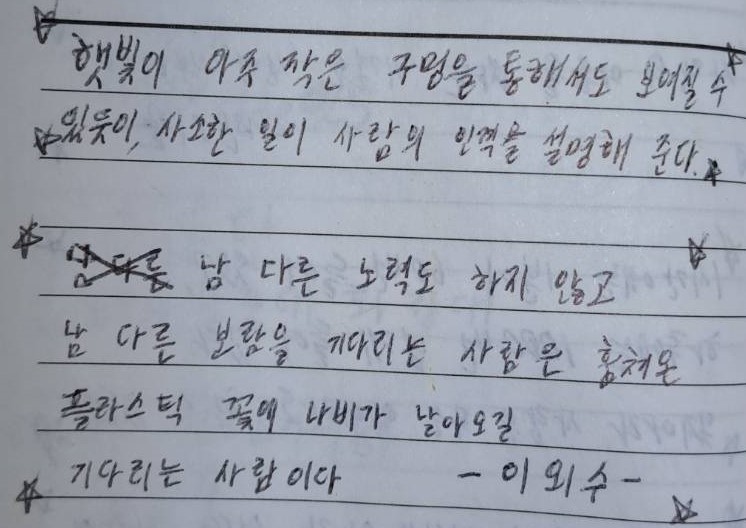 햇빛이 아주 작은 구멍을 통해서도 보여질 수
있듯이, 사소한 일이 사람의 인격을 설명해 준다.
남 다른 노력도 하지 않고
남 다른 보람을 기다리는 사람은 훔쳐온
플라스틱 꽃에 나비가 날아오길
기다리는 사람이다 - 이외수 -